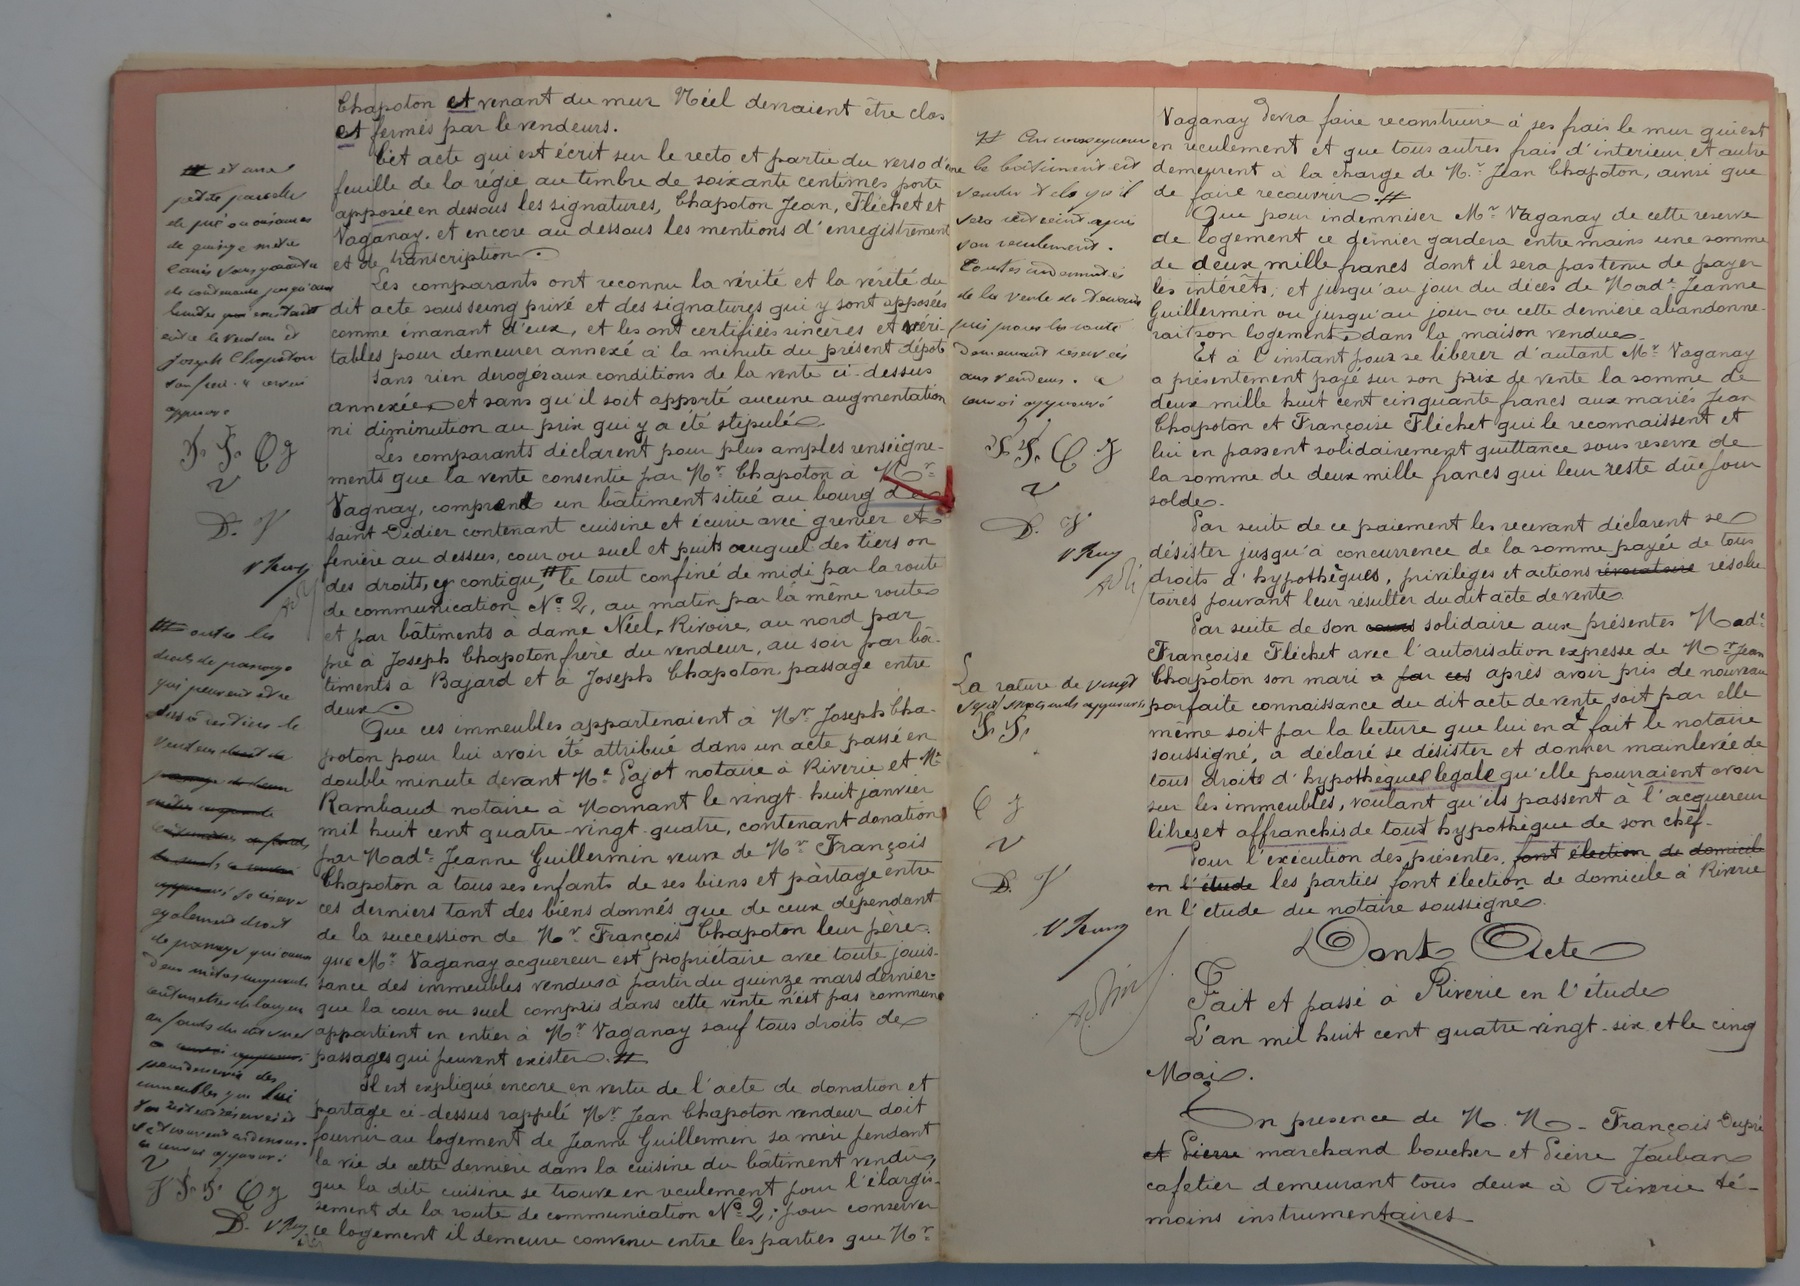 Chapoton et venant du mur Néel devraient être clos
et fermés par le vendeurs.
Cet acte qui est écrit sur le recto et partie du verso d'une
feuille de la régie au timbre de soixante centimes porte
apposée en dessous les signatures, Chapoton Jean, Fléchet et
Vaganay. et encore au dessous les mentions d'enregistrement
et de transcription.
Les comparants ont reconnu la vérité et la vérété du
dit acte sousseing privé et des signatures qui y sont apposées
comme émanant d'eux, et les ont certifiées sincères et véri-
tables pour demeurer annexé à la minute du présent dépôt
Sans rien derogér aux conditions de la vente ci-dessus
annexée et sans qu'il soit apporté aucune augmentation
ni diminution au prix qui y a été stipulé.
Les comparants déclarent pour plus amples renseigne-
ments que la vente consentie par Mr Chapoton à Mr
Vagnay, comprend un bâtiment situé au bourg de
saint Didier contenant cuisine et écurie avec grenier et
fenière au dessus, cour ou suel et puits auquel des tiers on
des droits, y contigu, # le tout confiné de midi par la route
de communication No 2, au matin par la même route
et par bâtiments à dame Néel, Rivoire, au nord par
pré à Joseph Chapoton frère du vendeur, au soir par bâ-
timents à Bajard et à Joseph Chapoton, passage entre
deux.
Que ces immeubles appartenaient à Mr Joseph Cha-
poton pour lui avoir été attribué dans un acte passé en
double minute devant Me Pajot notaire à Riverie et Me
Rambaud notaire à Mornant le vingt-huit janvier
mil huit cent quatre-vingt-quatre, contenant donation
par Made Jeanne Guillermin veuve de Mr François
Chapoton à tous ses enfants de ses biens et partage entre
ces derniers tant des biens donnés que de ceux dépendant
de la succession de Mr François Chapoton leur père.
que Mr Vaganay acquereur est propriétaire avec toute jouis-
sance des immeubles vendus à partir du quinze mars dernier
que la cour ou suel compris dans cette vente n'est pas commune
appartient en entier à Mr Vaganay sauf tous droits de
passages qui peuvent exister. #
Il est expliqué encore en vertu de l'acte de donation et
partage ci-dessus rappelé Mr Jean Chapoton vendeur doit
fournir au logement de Jeanne Guillermin sa mère pendant
la vie de cette dernière dans la cuisine du bâtiment vendu,
que la dite cuisine se trouve en reculement pour l'élargis-
sement de la route de communication No 2; pour conserver
ce logement il demeure convenu entre les parties que Mr
# et une
petite parcelle
de pré
de quinze mètre
entre le vendeur et
Joseph Chapoton
approuvé
J. F. C J
V
D. V
# outre les
droits de passage
qui peuvent être
dus à des tiers le
vendeur
également droit
de passage
immeubles que lui
V
J F. F. C J
D.
Vaganay devra faire reconstruire à ses frais le mur qui est
en reculement et que tous autres frais d'interieur et autre
demeurent à la charge de Mr Jean Chapoton, ainsi que
de faire recouvrir. #
Que pour indemniser Mr Vaganay de cette reserve
de logement ce dernier gardera entre mains une somme
de deux mille francs dont il sera pas tenu de payer
les intérêts; et jusqu'au jour du décés de Made Jeanne
Guillermin ou jusqu'au jour ou cette dernière abandonne-
rait son logement dans la maison vendue.
Et à l'instant pour se libérer d'autant Mr Vaganay
a présentement payé sur son prix de vente la somme de
deux mille huit cent cinquante francs aux mariés Jean
Chapoton et Françoise Fléchet qui le reconnaissent et
lui en passent solidairement quittance sous reserve de
la somme de deux mille francs qui leur reste due pour
solde.
Par suite de ce paiement les recevant déclarent se
désister jusqu'à concurrence de la somme payée de tous
droits d'hypothèques, priviléges et actions révocatoire résolu
toires pouvant leur résulter du dit acte de vente
Par suite de son cours solidaire aux présentes Made
Françoise Fléchet avec l'autorisation expresse de Mr Jean
Chapoton son mari a par ces après avoir pris de nouveau
parfaite connaissance du dit acte de vente soit par elle
même soit par la lecture que lui en a fait le notaire
soussigné, a déclaré se désister et donner mainlevée de
tous droits d'hypothèques légale qu'elle pourraient avoir
sur les immeubles, voulant qu'ils passent à l'acquereur
libres et affranchis de tout hypothèque de son chef.
Pour l'exécution des présentes, font élection de domicile
en l'étude les parties font élection de domicile à Riverie
en l'étude du notaire soussigné.
Dont Acte
Fait et passé à Riverie en l'étude
L'an mil huit cent quatre vingt-six et le cinq
Mai.
En presence de M. M. François Dupré
et Pierre marchand boucher et Pierre Jouban
cafetier demeurant tous deux à Riverie té-
moins instrumentaires
# En conséquence
le bâtiment est
vendu tel qu'il
sera
son reculement.
Toutes indemnités
de la vente de terrain
pris pour la route
demeurant réservées
aux vendeurs.
approuvé
J. F. C. J
V
D. V
La rature de vingt
sept mots nuls approuvée
F. F.
C J
V
D. V